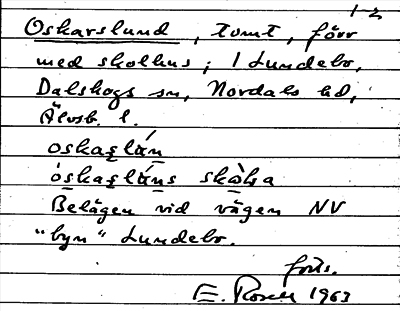 1-2
Oskarslund, tomt, förr
med skolhus; 1 Lundebo,
Dalskogs sn, Nordals hd,
Älvsb. l.
Belägen vid vägen NV
"byn" Lundebo.
forts.
E. Rosell 1963